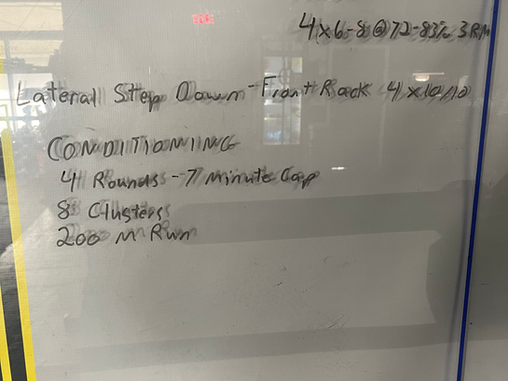 4x6-8@72-83% 3RM
Lateral Step Down - Front Rack 4x10/10
CONDITIONING
4 Rounds - 7 Minute Cap
8 Clusters
200 M Run